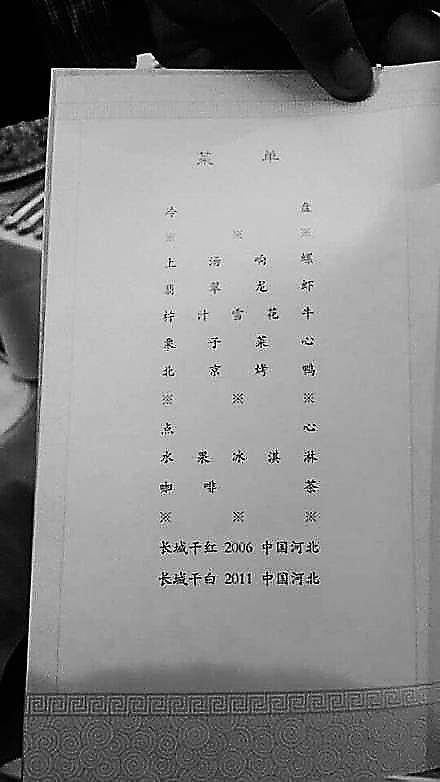 菜 单
冷 盘
※ ※ ※
上 汤 响 螺
翡 翠 龙 虾
柠 汁 雪 花 牛
栗 子 菜 心
北 京 烤 鸭
※ ※ ※
点 心
水 果 冰 淇 淋
咖 啡 茶
※ ※ ※
长城干红 2006 中国河北
长城干白 2011 中国河北